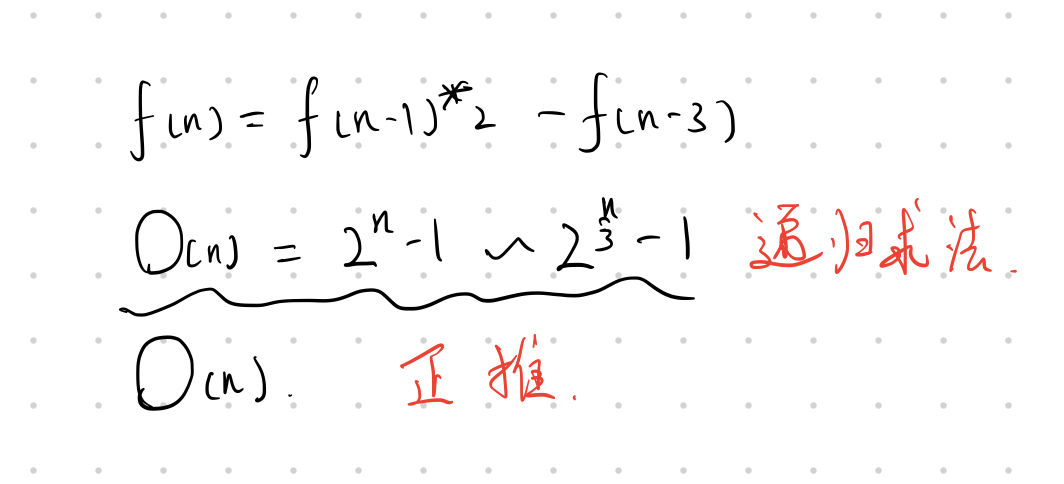 f(n) = f(n-1)*2 - f(n-3)
O(n) = 2^n - 1 ~ 2^{n/3} - 1 递归求法.
O(n). 正推.